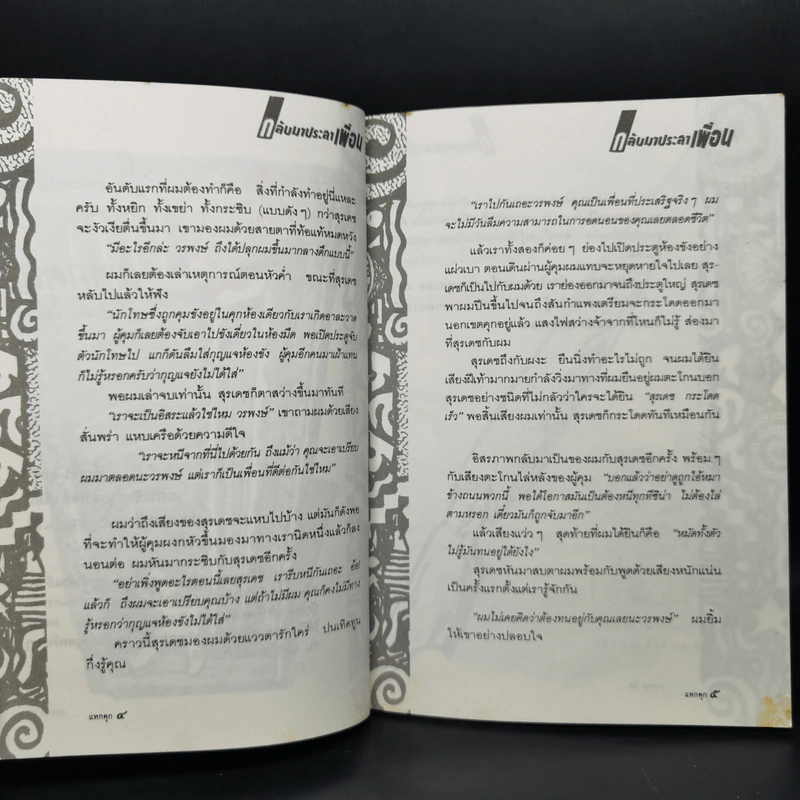 กลับมาประลาเพื่อน
อันดับแรกที่ผมต้องทำก็คือ สิ่งที่กำลังทำอยู่นี่แหละ
ครับ ทั้งหยิก ทั้งเขย่า ทั้งกระซิบ (แบบดังๆ) กว่าสุรเดช
จะงัวเงียตื่นขึ้นมา เขามองผมด้วยสายตาที่ท้อแท้หมดหวัง
“มีอะไรอีกล่ะ วรพงษ์ ถึงได้ปลุกผมขึ้นมากลางดึกแบบนี้”
ผมก็เลยต้องเล่าเหตุการณ์ตอนหัวค่ำ ขณะที่สุรเดช
หลับไปแล้วให้ฟัง
“นักโทษซึ่งถูกคุมขังอยู่ในคุกห้องเดียวกับเราเกิดอาละวาด
ขึ้นมา ผู้คุมก็เลยต้องจับเอาไปขังเดี่ยวในห้องมืด พอเปิดประตูจับ
ตัวนักโทษไป แกก็ดันลืมใส่กุญแจห้องขัง ผู้คุมอีกคนมาเฝ้าแทน
ก็ไม่รู้หรอกครับว่ากุญแจยังไม่ได้ใส่”
พอผมเล่าจบเท่านั้น สุรเดชก็ตาสว่างขึ้นมาทันที
“เราจะเป็นอิสระแล้วใช่ไหม วรพงษ์” เขาถามผมด้วยเสียง
สั่นพร่า แหบเครือด้วยความดีใจ
“เราจะหนีจากที่นี่ไปด้วยกัน ถึงแม้ว่า คุณจะเอาเปรียบ
ผมมาตลอดนะวรพงษ์ แต่เราก็เป็นเพื่อนที่ดีต่อกันใช่ไหม”
ผมว่าถึงเสียงของสุรเดชจะแหบไปบ้าง แต่มันก็ดังพอ
ที่จะทำให้ผู้คุมผงกหัวขึ้นมองมาทางเรานิดหนึ่งแล้วก็ลง
นอนต่อ ผมหันมากระซิบกับสุรเดชอีกครั้ง
“อย่าเพิ่งพูดอะไรตอนนี้เลยสุรเดช เรารีบหนีกันเถอะ อ้อ!
แล้วก็ ถึงผมจะเอาเปรียบคุณบ้าง แต่ถ้าไม่มีผม คุณก็คงไม่มีทาง
รู้หรอกว่ากุญแจห้องขังไม่ได้ใส่”
คราวนี้สุรเดชมองผมด้วยแววตารักใคร่ ปนเทิดทูน
กึ่งรู้คุณ
แหกคุก ๔
กลับมาประลาเพื่อน
“เราไปกันเถอะวรพงษ์ คุณเป็นเพื่อนที่ประเสริฐจริงๆ ผม
จะไม่มีวันลืมความสามารถในการอดนอนของคุณเลยตลอดชีวิต”
แล้วเราทั้งสองก็ค่อยๆ ย่องไปเปิดประตูห้องขังอย่าง
แผ่วเบา ตอนเดินผ่านผู้คุมผมแทบจะหยุดหายใจไปเลย สุร-
เดชก็เป็นไปกับผมด้วย เราย่องออกมาจนถึงประตูใหญ่ สุรเดช
พาผมปีนขึ้นไปจนถึงสันกำแพงเตรียมจะกระโดดออกมา
นอกเขตคุกอยู่แล้ว แสงไฟสว่างจ้าจากที่ไหนก็ไม่รู้ ส่องมา
ที่สุรเดชกับผม
สุรเดชถึงกับผงะ ยืนนิ่งทำอะไรไม่ถูก จนผมได้ยิน
เสียงฝีเท้ามากมายกำลังวิ่งมาทางที่ผมยืนอยู่ผมตะโกนบอก
สุรเดชอย่างชนิดที่ไม่กลัวว่าใครจะได้ยิน “สุรเดช กระโดด
เร็ว” พอสิ้นเสียงผมเท่านั้น สุรเดชก็กระโดดทันทีเหมือนกัน
อิสรภาพกลับมาเป็นของผมกับสุรเดชอีกครั้ง พร้อมๆ
กับเสียงตะโกนไล่หลังของผู้คุม “บอกแล้วว่าอย่าดูถูกไอ้หมา
ข้างถนนพวกนี้ พอได้โอกาสมันเป็นต้องหนีทุกทีซิน่า ไม่ต้องไล่
ตามหรอก เดี๋ยวมันก็ถูกจับมาอีก”
แล้วเสียงแว่วๆ สุดท้ายที่ผมได้ยินก็คือ “หมัดทั้งตัว
ไม่รู้มันทนอยู่ได้ยังไง”
สุรเดชหันมาสบตาผมพร้อมกับพูดด้วยเสียงหนักแน่น
เป็นครั้งแรกตั้งแต่เรารู้จักกัน
“ผมไม่เคยคิดว่าต้องทนอยู่กับคุณเลยนะวรพงษ์” ผมยิ้ม
ให้เขาอย่างปลอบใจ
แหกคุก ๕